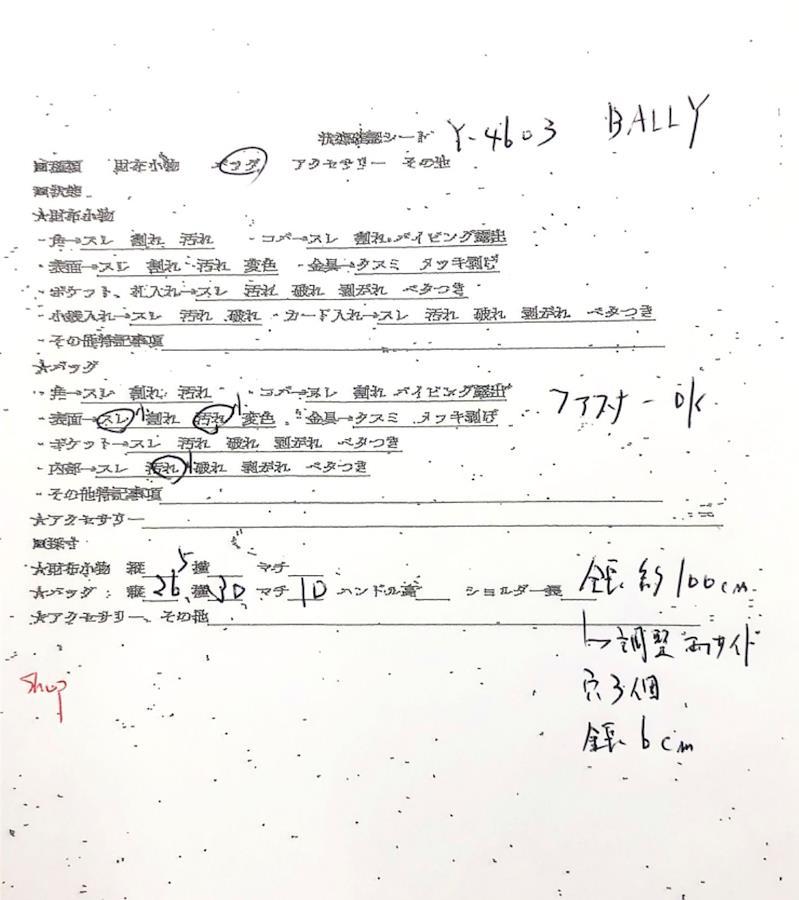 状態確認シート Y-4603 BALLY
■種類 財布小物 バッグ アクセサリー その他
■状態
★財布小物
・角→スレ 割れ 汚れ ・コバ→スレ 割れ パイピング露出
・表面→スレ 割れ 汚れ 変色 ・金具→クスミ メッキ剥げ
・ポケット、札入れ→スレ 汚れ 破れ 剥がれ ベタつき
・小銭入れ→スレ 汚れ 破れ ・カード入れ→スレ 汚れ 破れ 剥がれ ベタつき
・その他特記事項
★バッグ
・角→スレ 割れ 汚れ ・コバ→スレ 割れ パイピング露出
・表面→スレ 割れ 汚れ 変色 ・金具→クスミ メッキ剥げ
ファスナー OK
・ポケット→スレ 汚れ 破れ 剥がれ ベタつき
・内部→スレ 汚れ 破れ 剥がれ ベタつき
・その他特記事項
★アクセサリー
■採寸
★財布小物 縦 横 マチ
★バッグ: 縦 26.5 横 30 マチ 10 ハンドル高 ショルダー長 全長 約100cm
↳調整 両サイド
★アクセサリー、その他
穴3個
全長 6cm
Shop